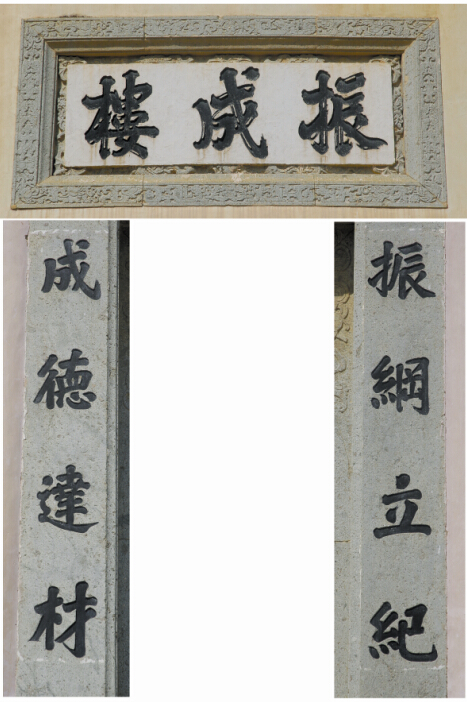 振成樓
振綱立紀
成德達材